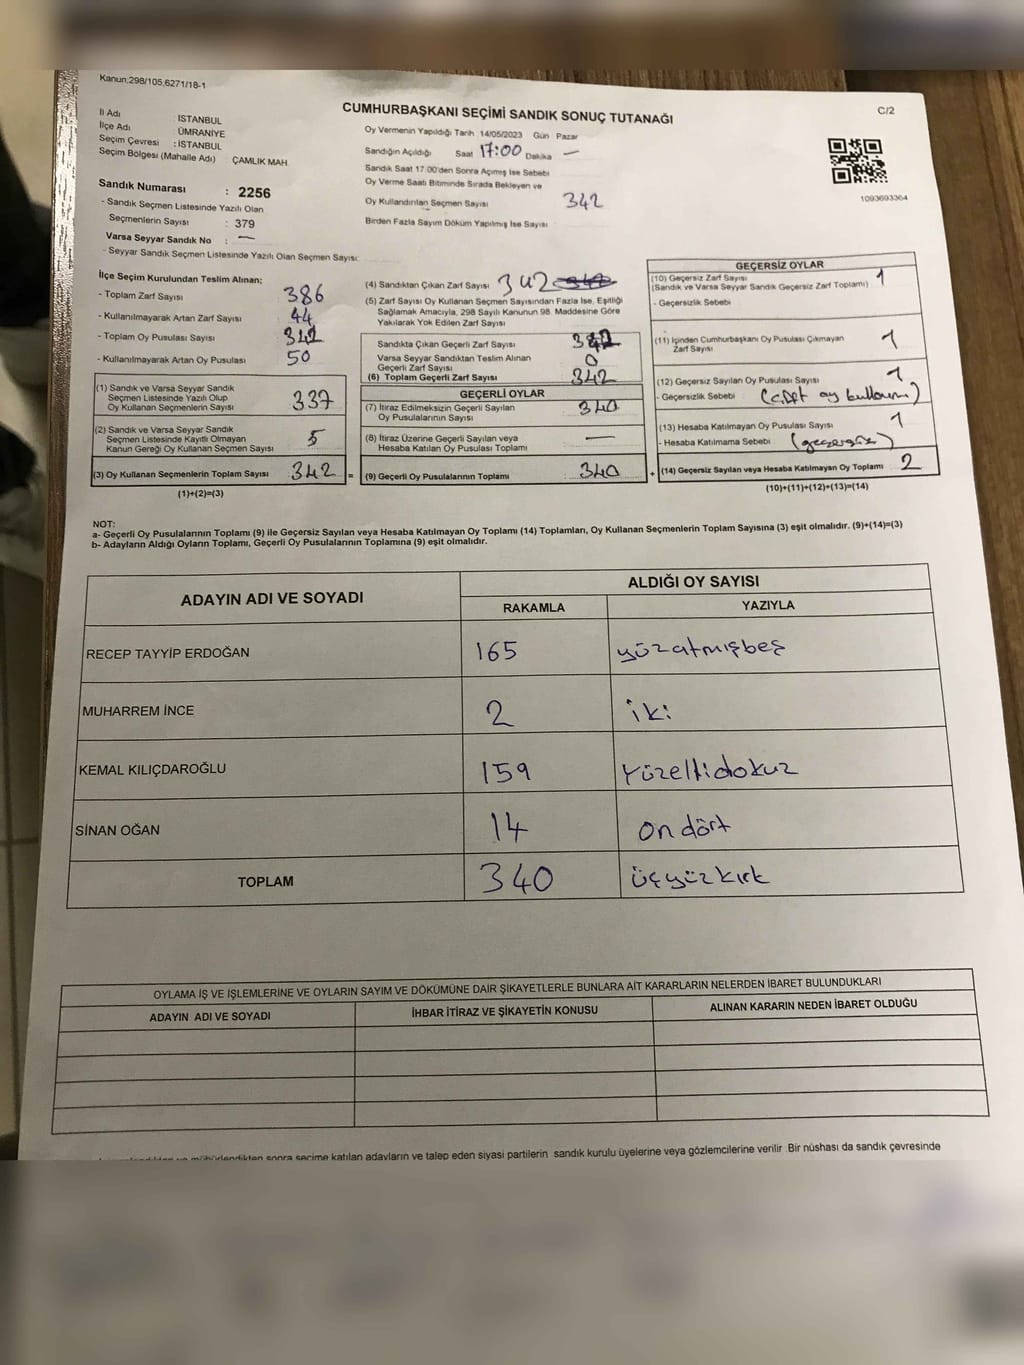 Kanun;298/105,6271/18-1
C/2
CUMHURBAŞKANI SEÇİMİ SANDIK SONUÇ TUTANAĞI
İl Adı : İSTANBUL
İlçe Adı : ÜMRANİYE
Seçim Çevresi : İSTANBUL
Seçim Bölgesi (Mahalle Adı) ÇAMLIK MAH.
Sandık Numarası : 2256
- Sandık Seçmen Listesinde Yazılı Olan
Seçmenlerin Sayısı : 379
Varsa Seyyar Sandık No : —
- Seyyar Sandık Seçmen Listesinde Yazılı Olan Seçmen Sayısı:
Oy Vermenin Yapıldığı Tarih 14/05/2023 Gün Pazar
Sandığın Açıldığı Saat 17:00 Dakika —
Sandık Saat 17:00'den Sonra Açılmış İse Sebebi
Oy Verme Saati Bitiminde Sırada Bekleyen ve
Oy Kullandırılan Seçmen Sayısı 342
Birden Fazla Sayım Döküm Yapılmış İse Sayısı :
1093693364
İlçe Seçim Kurulundan Teslim Alınan:
- Toplam Zarf Sayısı 386
- Kullanılmayarak Artan Zarf Sayısı 44
- Toplam Oy Pusulası Sayısı 342
- Kullanılmayarak Artan Oy Pusulası 50
(1) Sandık ve Varsa Seyyar Sandık
Seçmen Listesinde Yazılı Olup
Oy Kullanan Seçmenlerin Sayısı 337
(2) Sandık ve Varsa Seyyar Sandık
Seçmen Listesinde Kayıtlı Olmayan
Kanun Gereği Oy Kullanan Seçmen Sayısı 5
(3) Oy Kullanan Seçmenlerin Toplam Sayısı 342 =
(1)+(2)=(3)
(4) Sandıktan Çıkan Zarf Sayısı 342
(5) Zarf Sayısı Oy Kullanan Seçmen Sayısından Fazla İse, Eşitliği
Sağlamak Amacıyla, 298 Sayılı Kanunun 98. Maddesine Göre
Yakılarak Yok Edilen Zarf Sayısı
Sandıkta Çıkan Geçerli Zarf Sayısı 342
Varsa Seyyar Sandıktan Teslim Alınan
Geçerli Zarf Sayısı 0
(6) Toplam Geçerli Zarf Sayısı 342
GEÇERLİ OYLAR
(7) İtiraz Edilmeksizin Geçerli Sayılan
Oy Pusulalarının Sayısı 340
(8) İtiraz Üzerine Geçerli Sayılan veya
Hesaba Katılan Oy Pusulası Toplamı —
(9) Geçerli Oy Pusulalarının Toplamı 340 +
GEÇERSİZ OYLAR
(10) Geçersiz Zarf Sayısı 1
(Sandık ve Varsa Seyyar Sandık Geçersiz Zarf Toplamı)
- Geçersizlik Sebebi
(11) İçinden Cumhurbaşkanı Oy Pusulası Çıkmayan
Zarf Sayısı 1
(12) Geçersiz Sayılan Oy Pusulası Sayısı 1
- Geçersizlik Sebebi (çift oy kullanımı)
(13) Hesaba Katılmayan Oy Pusulası Sayısı 1
- Hesaba Katılmama Sebebi (geçersiz)
(14) Geçersiz Sayılan veya Hesaba Katılmayan Oy Toplamı 2
(10)+(11)+(12)+(13)=(14)
NOT:
a- Geçerli Oy Pusulalarının Toplamı (9) ile Geçersiz Sayılan veya Hesaba Katılmayan Oy Toplamı (14) Toplamları, Oy Kullanan Seçmenlerin Toplam Sayısına (3) eşit olmalıdır. (9)+(14)=(3)
b- Adayların Aldığı Oyların Toplamı, Geçerli Oy Pusulalarının Toplamına (9) eşit olmalıdır.
ADAYIN ADI VE SOYADI
ALDIĞI OY SAYISI
RAKAMLA YAZIYLA
RECEP TAYYİP ERDOĞAN 165 yüzatmışbeş
MUHARREM İNCE 2 iki
KEMAL KILIÇDAROĞLU 159 Yüzellidokuz
SİNAN OĞAN 14 on dört
TOPLAM 340 üçyüzkırk
OYLAMA İŞ VE İŞLEMLERİNE VE OYLARIN SAYIM VE DÖKÜMÜNE DAİR ŞİKAYETLERLE BUNLARA AİT KARARLARIN NELERDEN İBARET BULUNDUKLARI
ADAYIN ADI VE SOYADI İHBAR İTİRAZ VE ŞİKAYETİN KONUSU ALINAN KARARIN NEDEN İBARET OLDUĞU
mühürlendikten sonra seçime katılan adayların ve talep eden siyasi partilerin sandık kurulu üyelerine veya gözlemcilerine verilir. Bir nüshası da sandık çevresinde